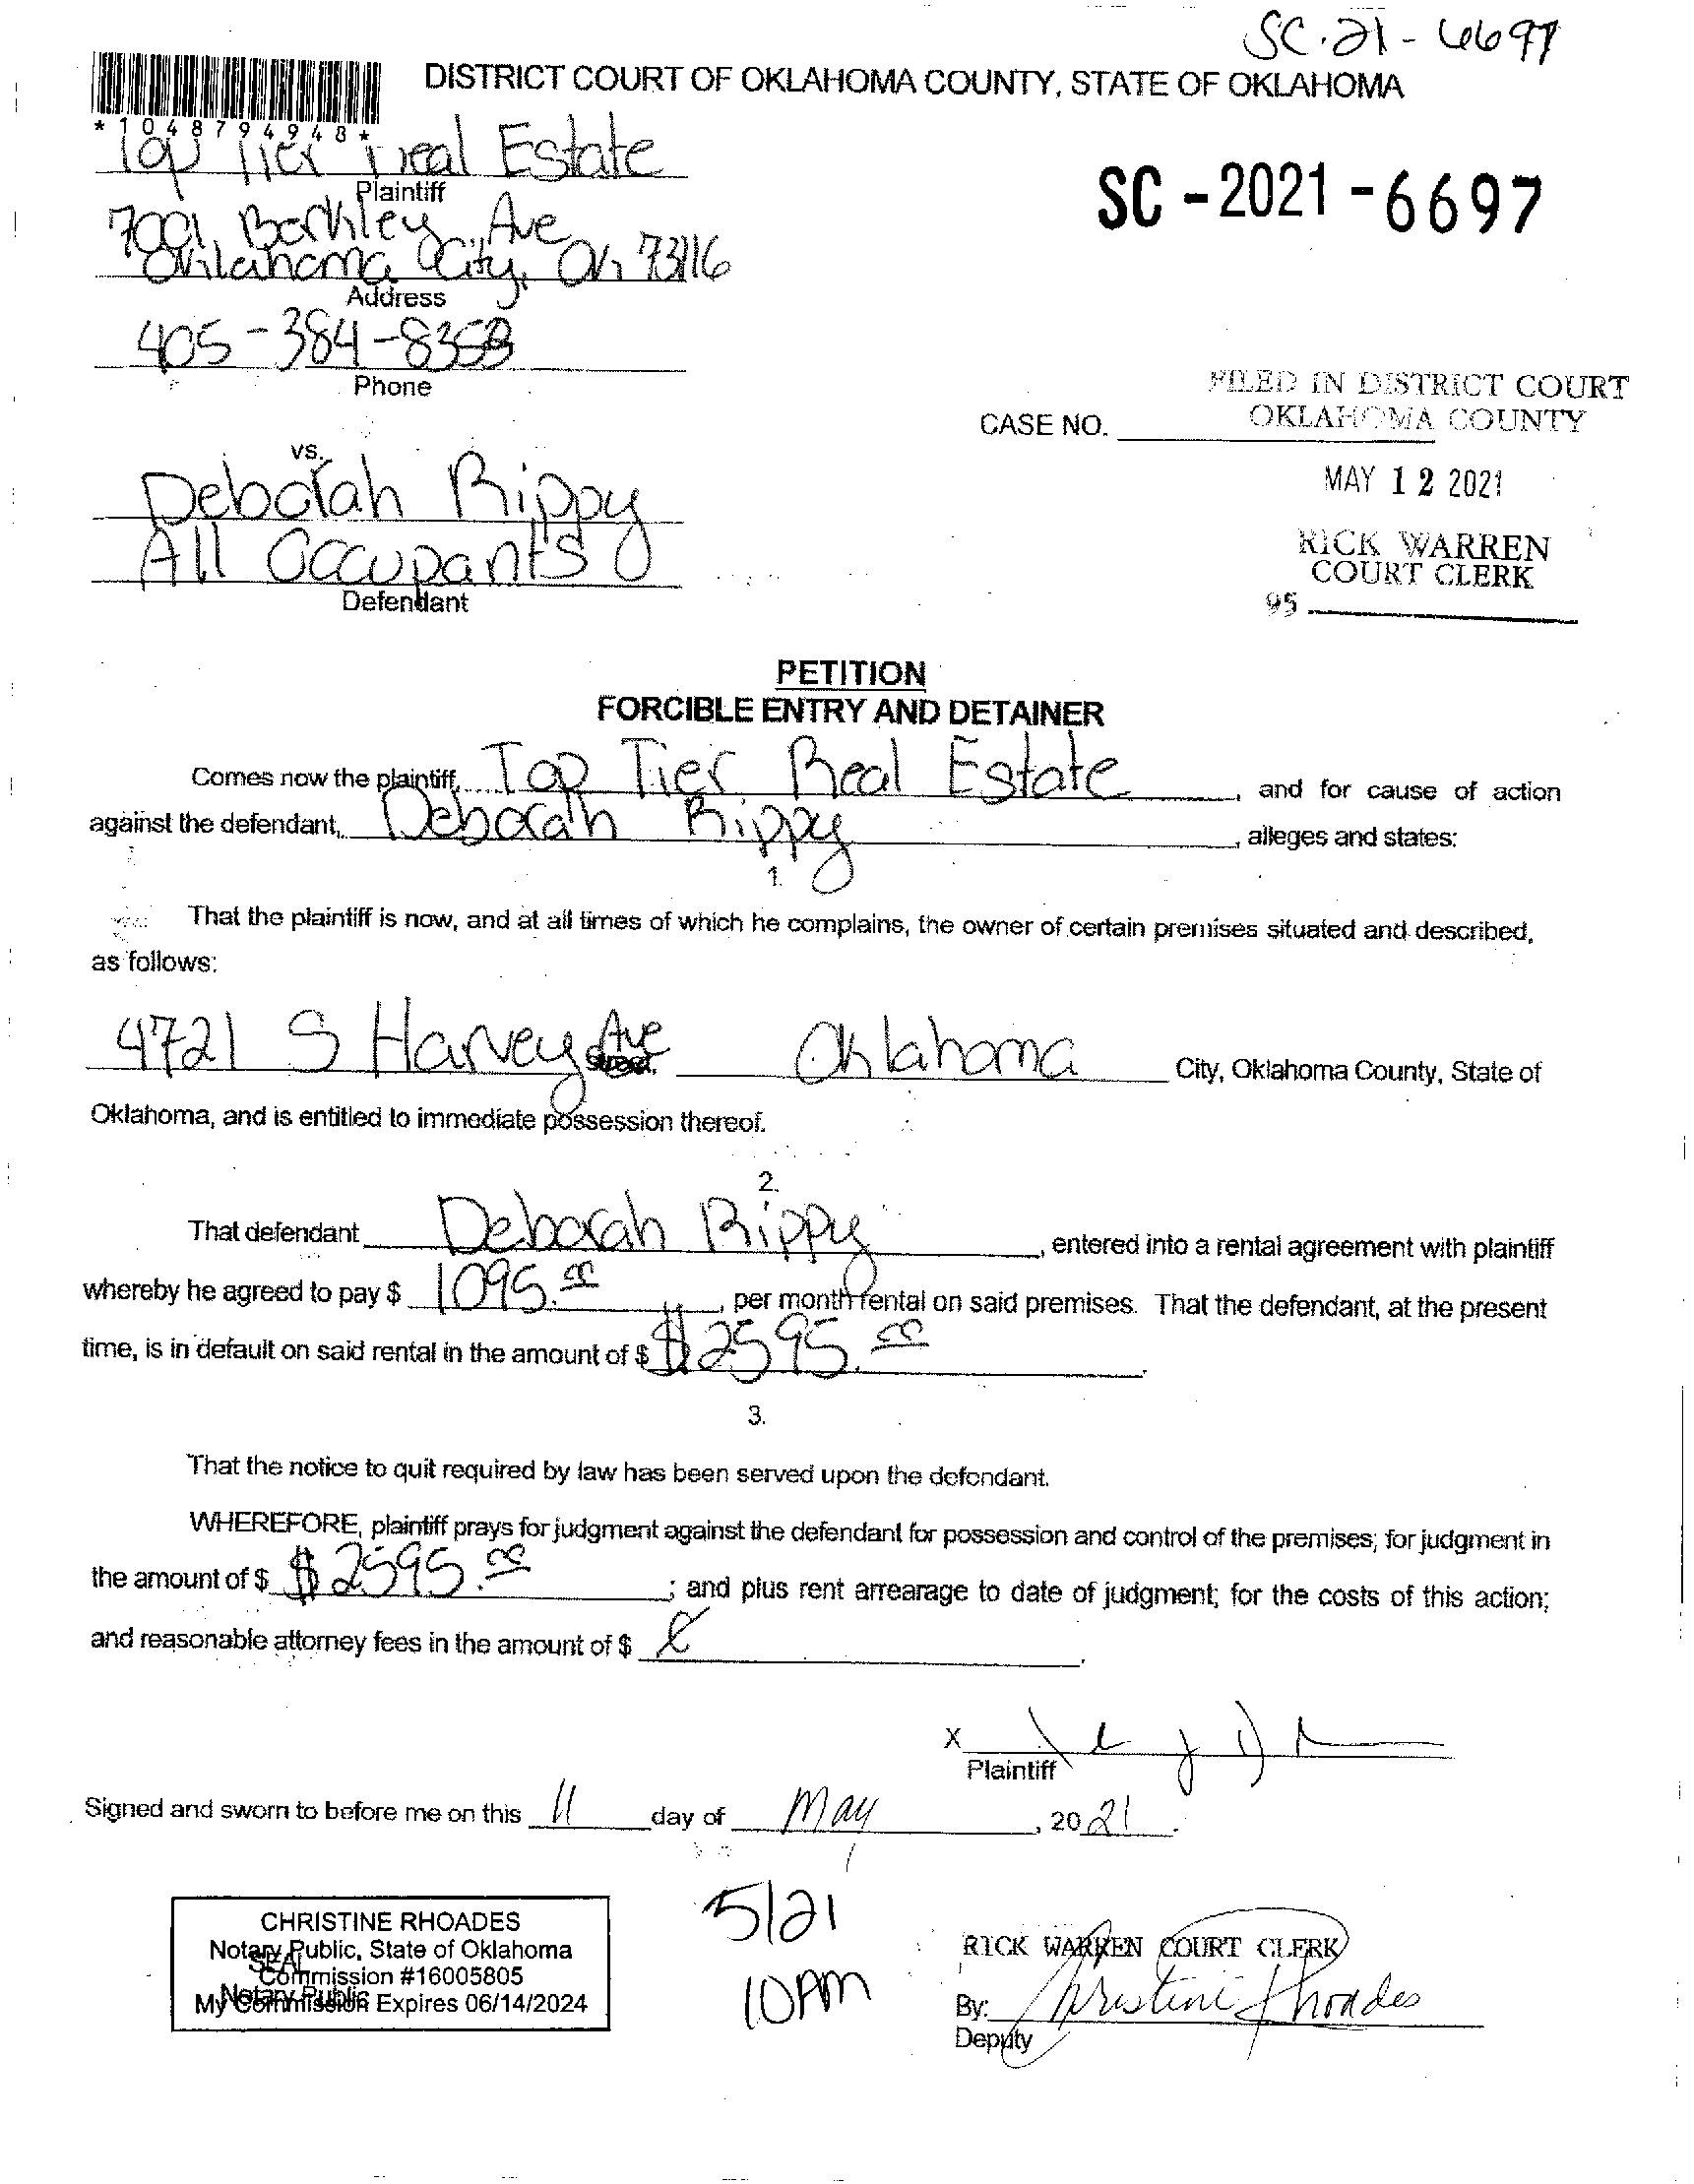 SC-21-6697
DISTRICT COURT OF OKLAHOMA COUNTY, STATE OF OKLAHOMA
*1048794948*
Top Tier Real Estate
SC-2021-6697
Plaintiff
7001 Berkley Ave
Oklahoma City, Ok 73116
Address
405-384-8353
Phone
FILED IN DISTRICT COURT
OKLAHOMA COUNTY
CASE NO.
vs.
MAY 12 2021
Deborah Rippy
All Occupants
RICK WARREN
COURT CLERK
Defendant
95
PETITION
FORCIBLE ENTRY AND DETAINER
Comes now the plaintiff, Top Tier Real Estate, and for cause of action
against the defendant, Deborah Rippy, alleges and states:
1.
That the plaintiff is now, and at all times of which he complains, the owner of certain premises situated and described,
as follows:
4721 S Harvey Ave Street Oklahoma City, Oklahoma County, State of
Oklahoma, and is entitled to immediate possession thereof.
2.
That defendant Deborah Rippy, entered into a rental agreement with plaintiff
whereby he agreed to pay $ 1095.00, per month rental on said premises. That the defendant, at the present
time, is in default on said rental in the amount of $ $2595.00.
3.
That the notice to quit required by law has been served upon the defendant.
WHEREFORE, plaintiff prays for judgment against the defendant for possession and control of the premises; for judgment in
the amount of $ $2595.00; and plus rent arrearage to date of judgment; for the costs of this action;
and reasonable attorney fees in the amount of $
X
Plaintiff
Signed and sworn to before me on this 11 day of May, 2021.
5/21
10AM
CHRISTINE RHOADES
Notary Public, State of Oklahoma
SEAL
Commission #16005805
Notary Public
My Commission Expires 06/14/2024
RICK WARREN COURT CLERK
By: Christine Rhoades
Deputy